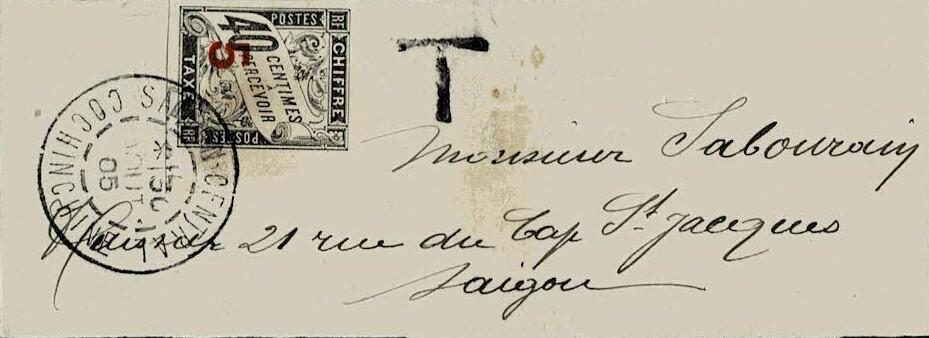 POSTES
RF
RF
CHIFFRE
TAXE
40
5
CENTIMES
À
PERCEVOIR
POSTES
RF
RF
T
SAIGON CENTRAL
COCHINCHINE
*
30
AOUT
05
Monsieur Sabourain
21 rue du Cap St. Jacques
Saigon